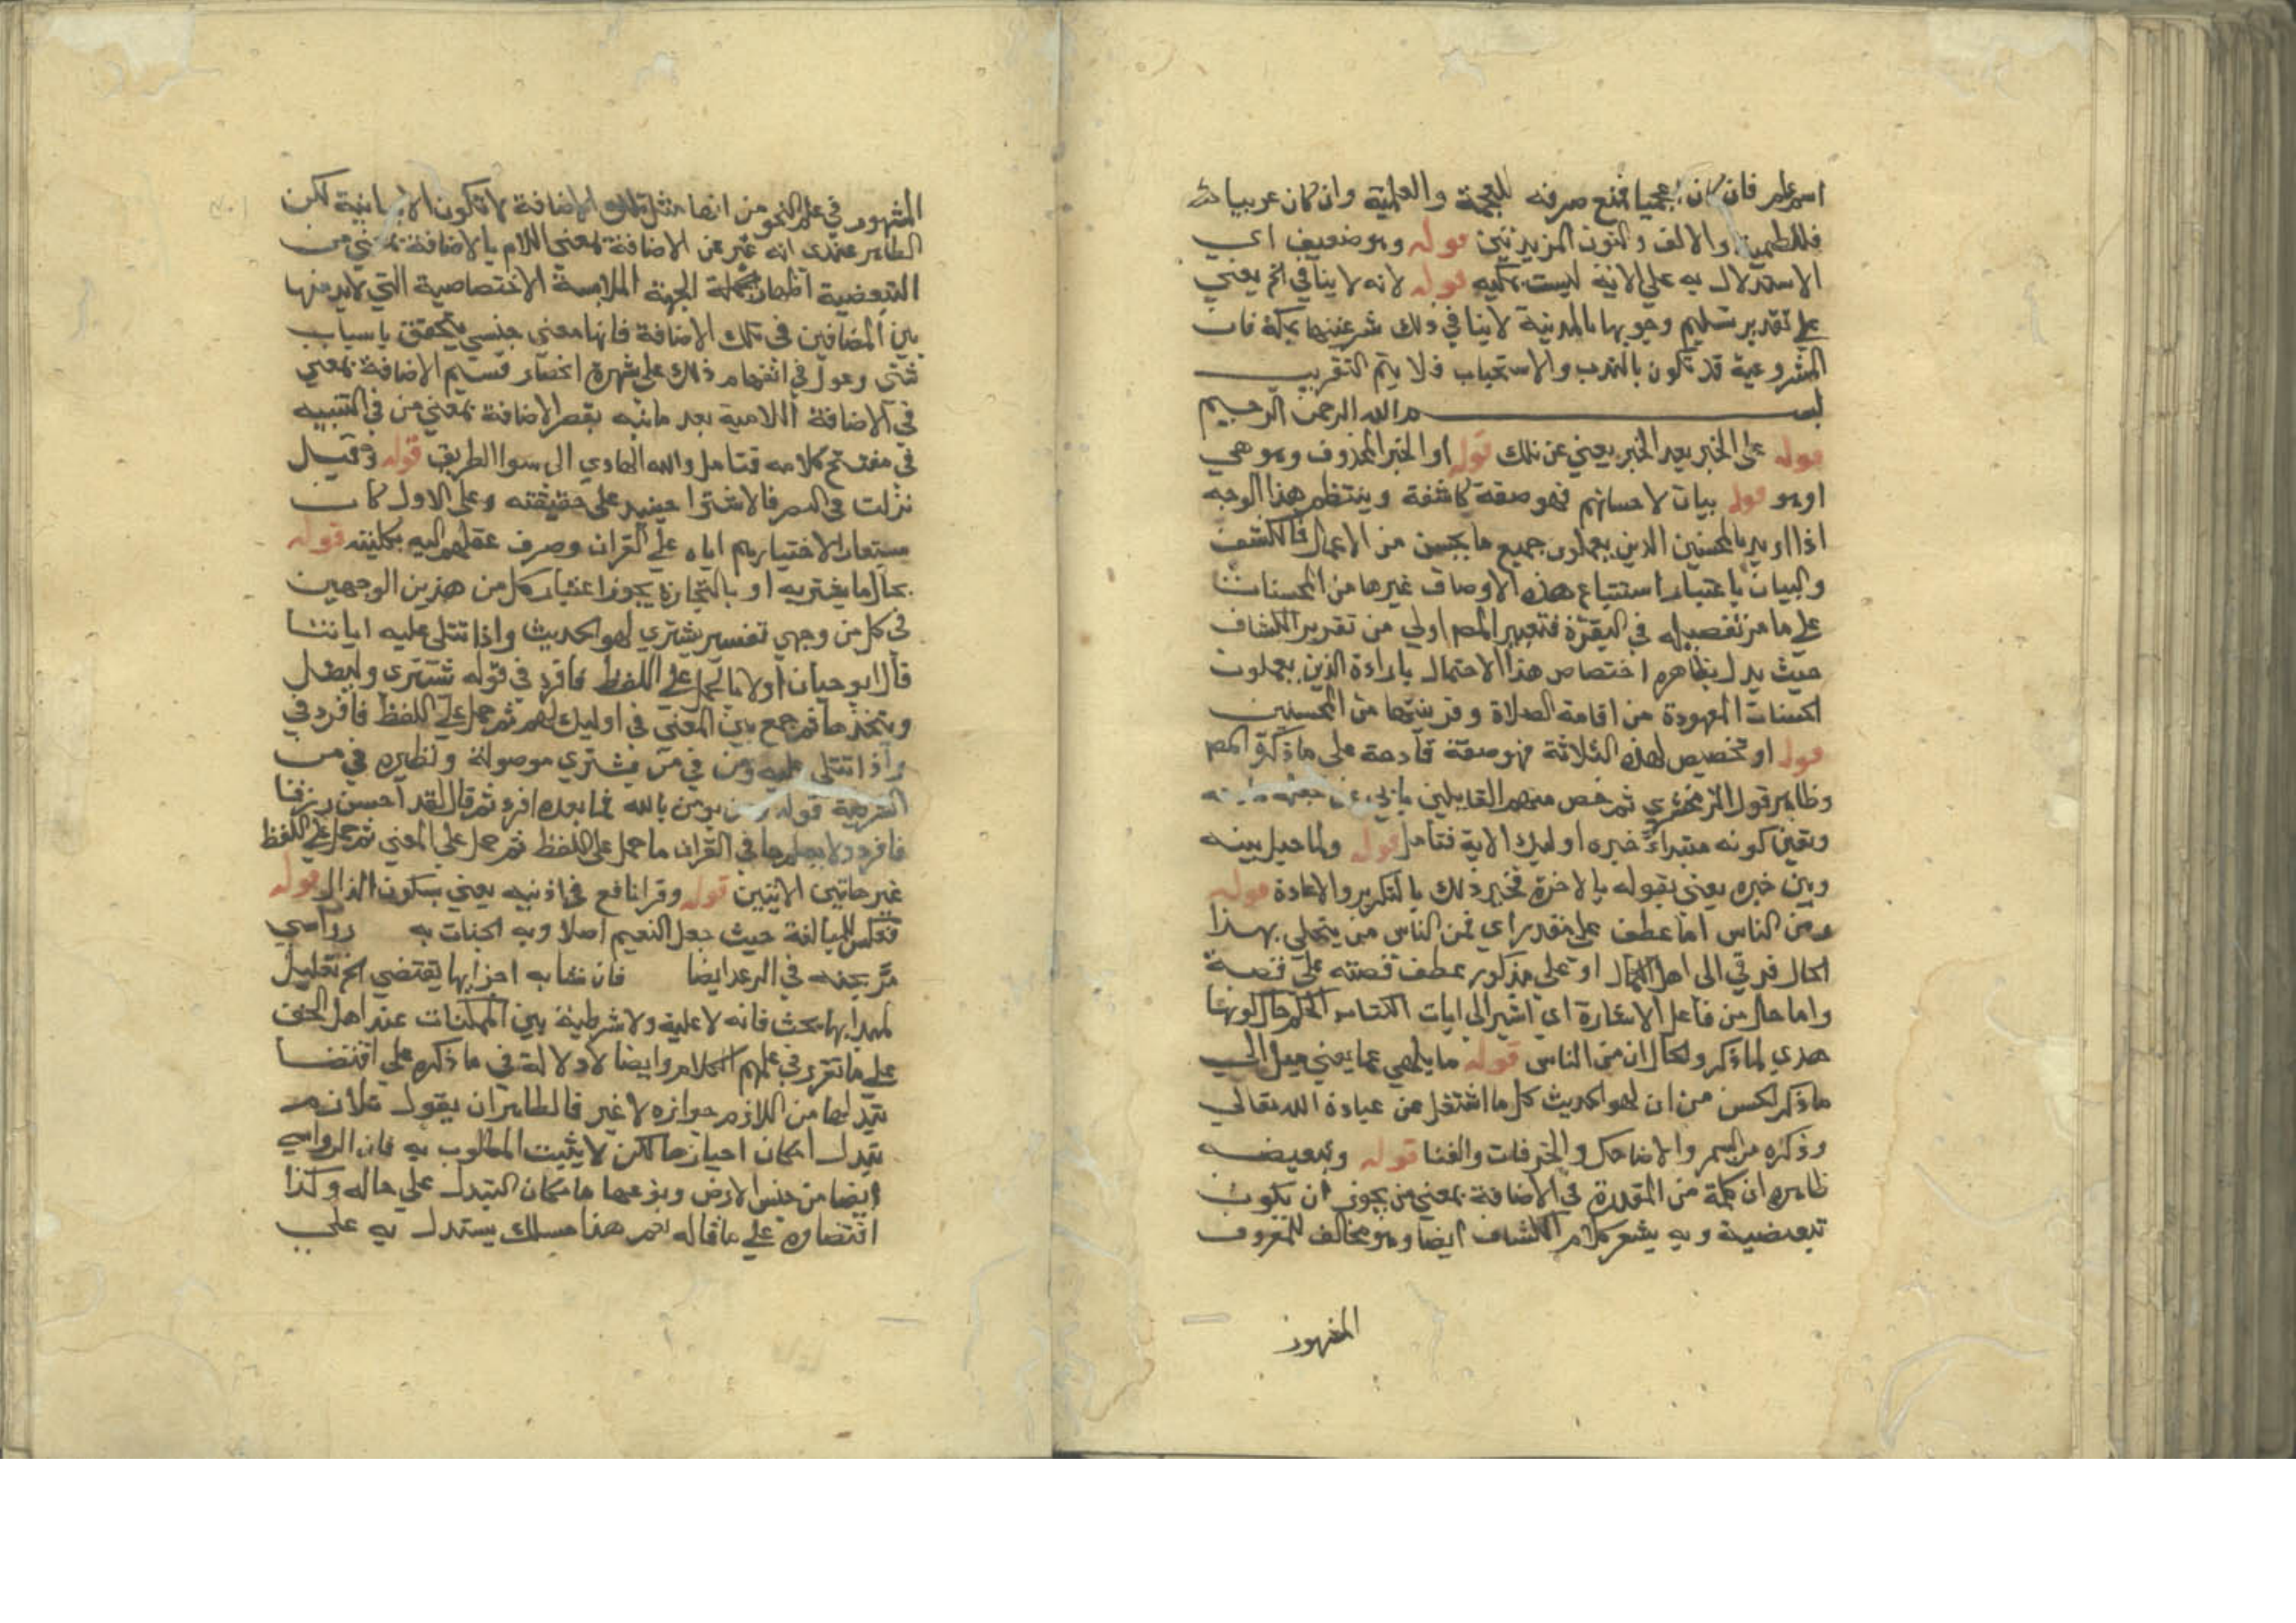 اسم علم فان كان اعجميا فمنع صرفه للعجمة والعلمية وان كان عربيا
فللعلمية والالف والنون المزيدتين قوله وهو ضعيف اي
الاستدلال به على الاية ليست بمكيه قوله لانه لا ينافي الخ يعني
على تقدير تسليم وجوبها بالمدينة لا ينافي ذلك شرعيتها بمكة فان
المشروعية قد تكون بالندب والاستحباب فلا يتم التقريب
بسم الله الرحمن الرحيم
قوله على الخبر بعد الخبر يعني عن تلك قوله او الخبر المحذوف وهو هي
او هو قوله بيان لاحسانهم فهو صفة كاشفة وينتظم هذا الوجه
اذا اريد بالمحسنين الذين يعملون جميع ما يحسن من الاعمال فالكشف
والبيان باعتبار استتباع هذه الاوصاف غيرها من الحسنات
على ما مر تفصيله في البقرة فتعبير المص اولي من تقرير الكشاف
حيث يدل بظاهره اختصاص هذا الاحتمال بارادة الذين يعملون
الحسنات المعهودة من اقامة الصلاة وقرينتها من المحسنين
قوله او تخصيص لهذه الثلاثة فهو صفة مادحة على ما ذكره المص
وظاهر قول الزمخشري ثم خص منهم القايمين
وتعين كونه مبتداء خبره اوليك الاية فتامل قوله ولما حيل بينه
وبين خبره يعني بقوله بالاخرة فخبر ذلك بالتكرير والاعادة قوله
ومن الناس اما عطف على مقدر اي فمن الناس من يتحلى بهذا
الحال فيرقي الى اهل الكمال او على مذكور عطف قصته على قصة
واما حال من فاعل الاشارة اي اشير الى ايات الكتاب الحكيم حال كونها
هدي لما ذكر والحال ان من الناس قوله ما يلهي عما يعني ميل الى
ما ذكر الحسن من ان لهو الحديث كل ما اشتغل عن عبادة الله تعالي
وذكره من السمر والاضاحيك والخرفات والغنا قوله وتبعيضه
ظاهره ان كلمة من المقدرة في الاضافة بمعني من يجوز ان يكون
تبعيضية وبه يشعر كلام الكشاف ايضا وهو مخالف للمعروف
المشهور
المشهور في علم النحو من انها مثل تلك الاضافة لا تكون الا بيانية لكن
الظاهر عندي انه عبر عن الاضافة بمعني اللام بالاضافة بمعني من
التبعضية اظهار الجهة الملابسة الاختصاصية التي لابد منها
بين المضافين في تلك الاضافة فانها معنى جنسي يتحقق باسباب
شتي وعول في انفهام ذلك على شهرة انحصار قسيم الاضافة بمعني
في الاضافة اللامية بعد ما نبه بقصر الاضافة بمعني من في التنبيه
في مفتتح كلامه فتامل والله الهادي الى سوا الطريق قوله وقيل
نزلت في النضر فالاشترا حينيد على حقيقته وعلى الاول كان
مستعارا لاختيارهم اياه على القران وصرف عقلهم اليه بكليته قوله
بحال ما يشتريه او بالتجارة يجوز اعتبار كل من هذين الوجهين
في كل من وجهي تفسير يشتري لهو الحديث واذا تتلى عليه اياتنا
قال ابو حيان اولا بالحمل على اللفظ فافرد في قوله يشتري وليضل
ويتخذها ثم جمع على المعني في اوليك لهم ثم حمل على اللفظ فافرد في
واذا تتلى عليه ومن في من يشتري موصولة ونظيره في من
الشرطية قوله ومن يومن بالله فما بعده افرد ثم قال لقد احسن رزقنا
فافرد ولا يعلم ما في القران ما حمل على اللفظ ثم حمل على المعني ثم حمل على اللفظ
غير هاتين الايتين قوله وقرا نافع في اذنيه يعني بسكون الذال قوله
فعكس للمبالغة حيث جعل النعيم اصلا وبه الجنات به رواسي
مر بحثه في الرعد ايضا فان تشابه اجزايها يقتضي الخ تعليل
لميدانها بحث فانه لا علية ولا شرطية بين الممكنات عند اهل الحق
على ما تقرر في علم الكلام وايضا لا دلالة في ما ذكره على اقتضا
تبدلها من اللازم جوازه لا غير فالظاهر ان يقول
تبدل امكان احيازها لكن لا يثبت المطلوب به فان الرواسي
ايضا من جنس الارض وبوعها فامكان التبدل على حاله وكذا
اقتضاوه على ما قاله نعم هنا مسلك يستدل به على